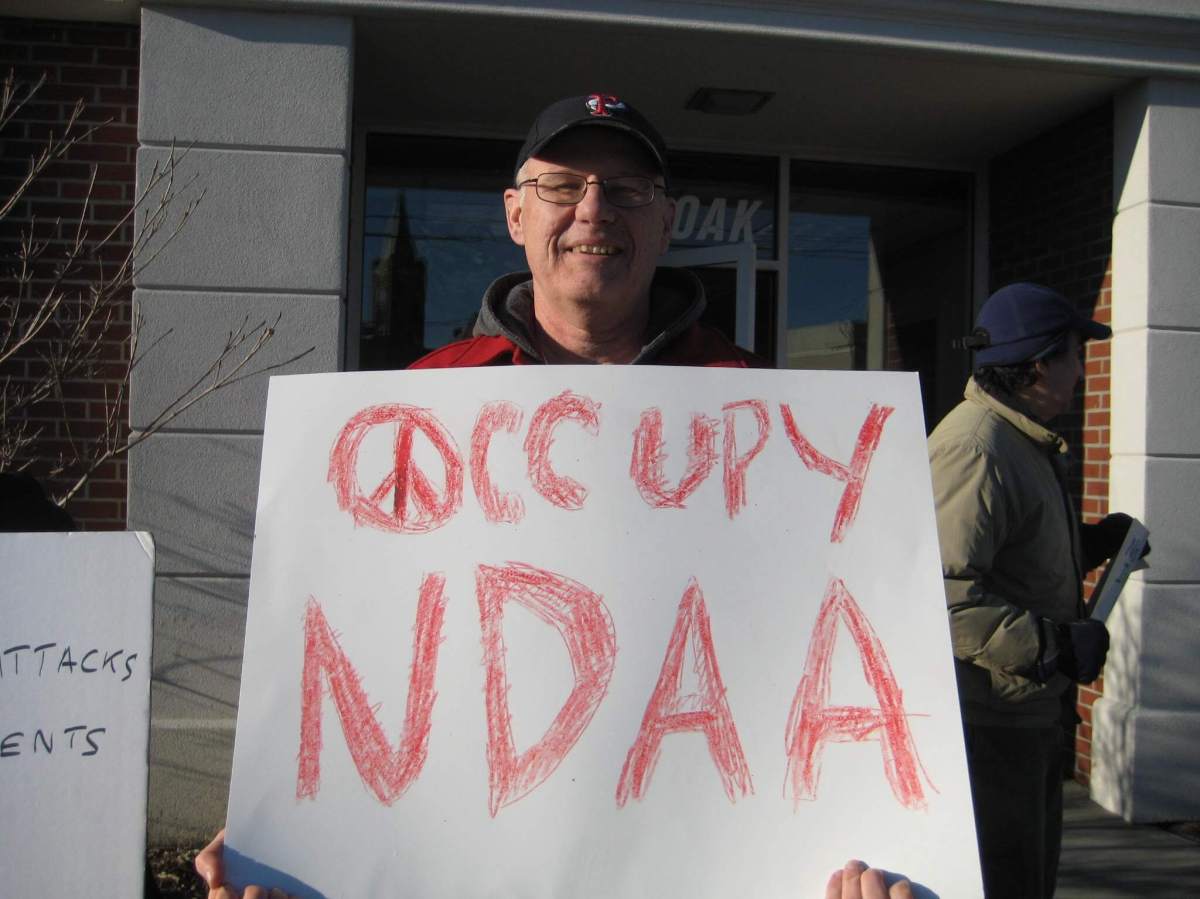 OAK
OCCUPY
NDAA
ATTACKS
ENTS